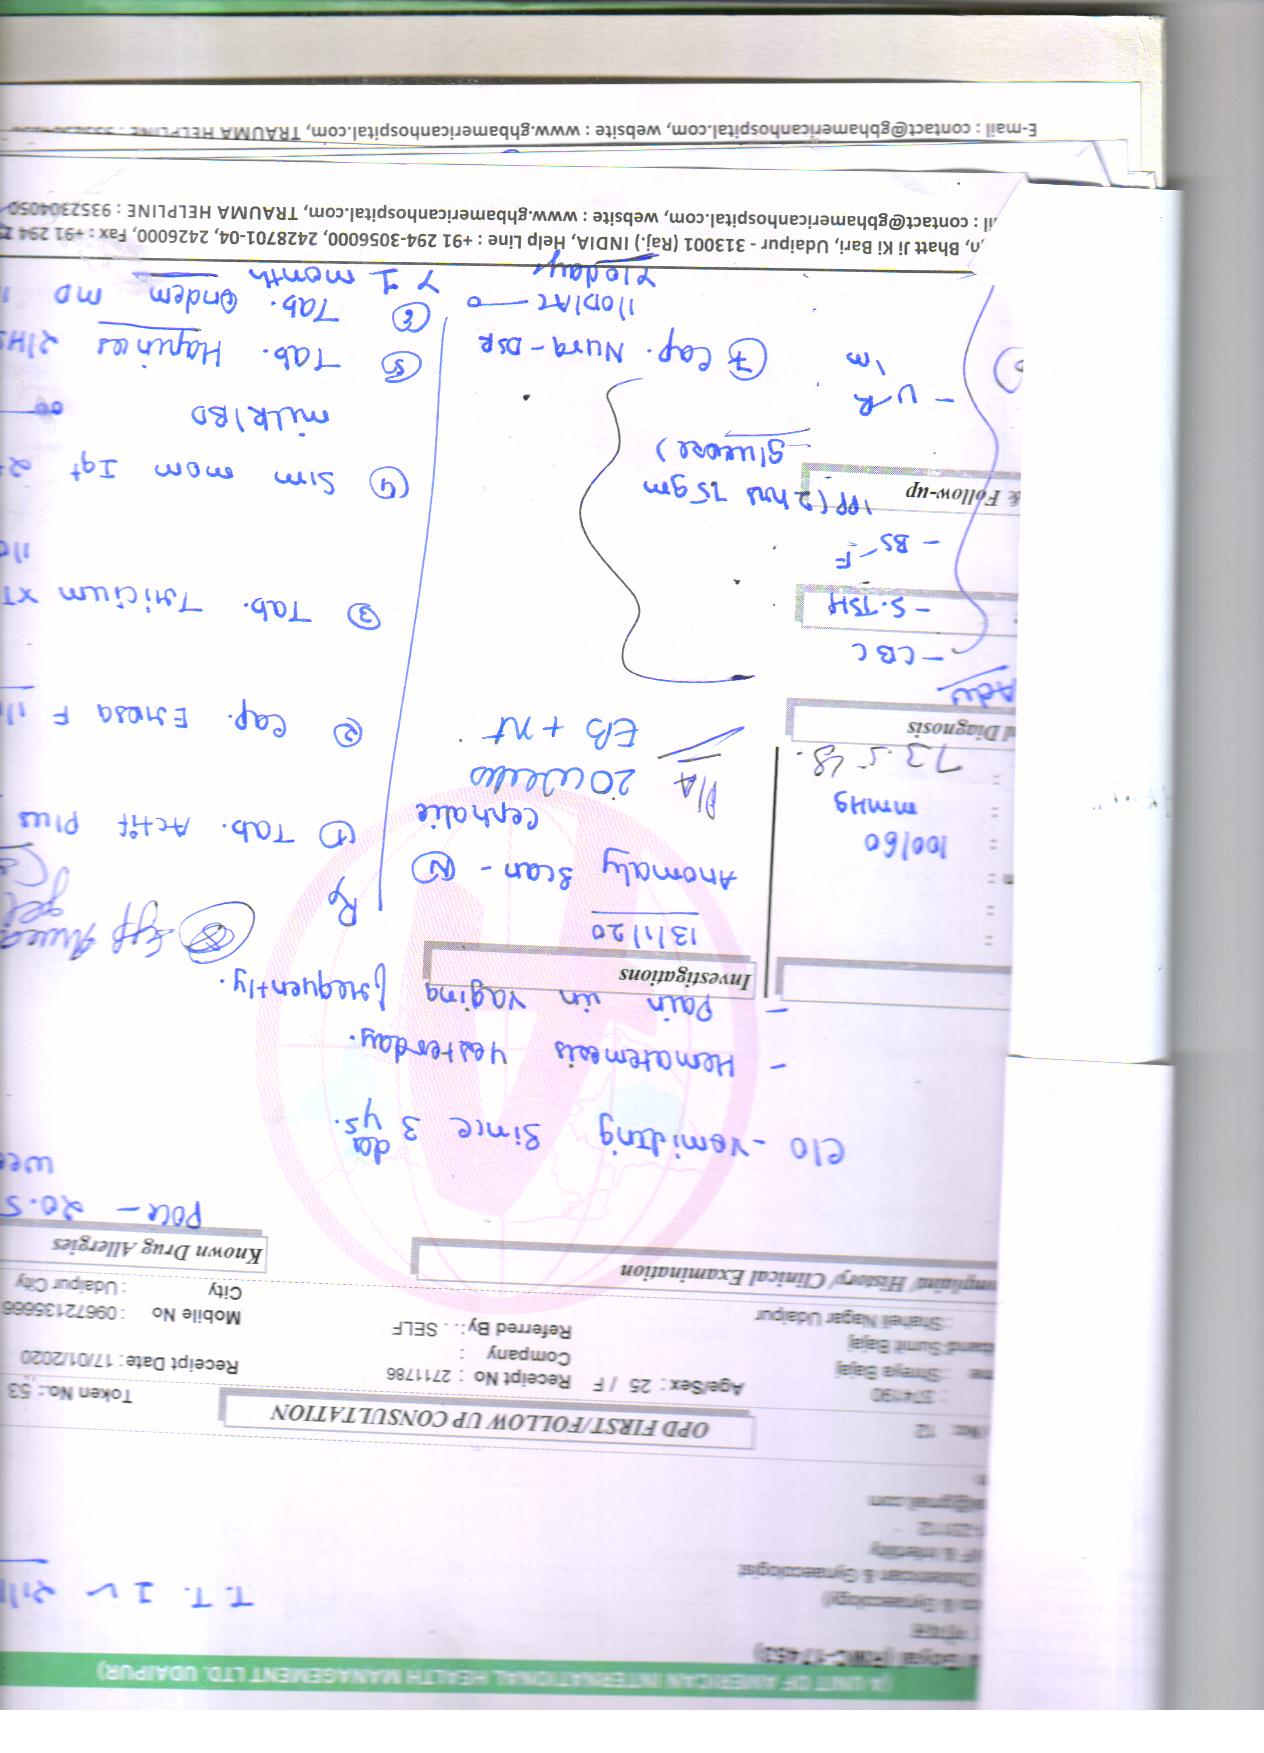 (A UNIT OF AMERICAN INTERNATIONAL HEALTH MANAGEMENT LTD. UDAIPUR)
Goyal (RMC-17453)
& Gynaecology)
Obstetrician & Gynaecologist
IVF & Infertility
@gmail.com
T.T. I
No: 12
OPD FIRST/FOLLOW UP CONSULTATION
Token No.: 53
: 374190
Age/Sex: 25 / F Receipt No : 2711786
Receipt Date: 17/01/2020
me : Shreya Bajaj
Company :
band Sumit Bajaj
Referred By: . . SELF
Mobile No : 09672135666
: Shanti Nagar Udaipur
City : Udaipur City
omplaint/ History/ Clinical Examination
Known Drug Allergies
POG - 20.5
wee
C/O - vomiting since 3 days.
- Hematemesis yesterday.
- Pain in vagina frequently.
Investigations
13/1/20
Anomaly Scan - N
cephalic
100/60
mmHg
73.5
P/A 20 weeks
EB + nt
l Diagnosis
Adv
- CBC
- S.TSH
- BS - F
1PP (2 hrs 75gm
glucose)
& Follow-up
- U R
m
Rp
gel
① Tab. Actif Plus
② Cap. Enosa F
③ Tab. Tricium XT
④ Sim mom
milk/BD
⑤ Tab.
⑥ Tab. Ondem MD
x 1 month
⑦ Cap. Nura-DSR
1/OD/AC
x 10days
n, Bhatt Ji Ki Bari, Udaipur - 313001 (Raj.) INDIA, Help Line : +91 294-3056000, 2428701-04, 2426000, Fax : +91 294
il : contact@gbhamericanhospital.com, website : www.gbhamericanhospital.com, TRAUMA HELPLINE : 9352304050
E-mail : contact@gbhamericanhospital.com, website : www.gbhamericanhospital.com, TRAUMA HELPLINE :